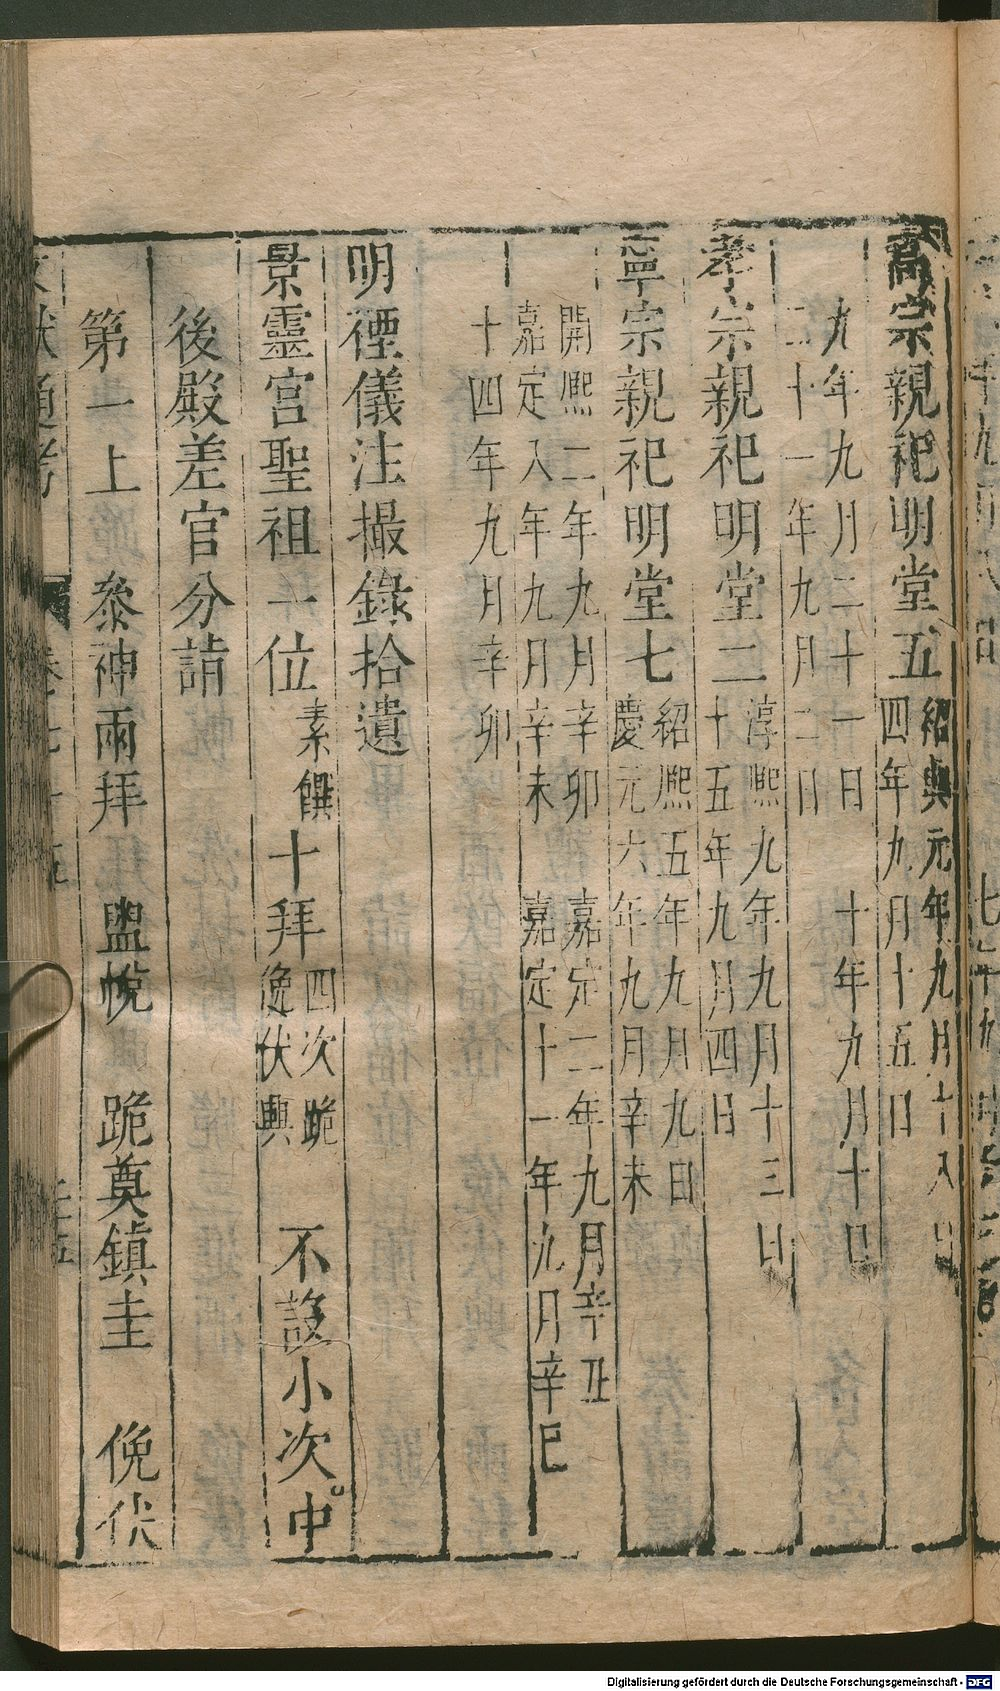 高宗親祀明堂五紹興元年九月十八日
四年九月十五日
九年九月二十一日 十年九月十日
二十一年九月二日
孝宗親祀明堂二淳熙九年九月十三日
十五年九月四日
寧宗親祀明堂七紹熙五年九月九日
慶元六年九月辛未
開熙二年九月辛卯 嘉定二年九月辛丑
嘉定八年九月辛未 嘉定十一年九月辛巳
十四年九月辛卯
明禋儀注撮錄拾遺
景靈宮聖祖一位素饌十拜四次跪俛伏興 不設小次中
後殿差官分詣
第一上 叅神兩拜 盥帨 跪奠鎮圭 俛伏
文獻通考 卷七十五 二五
Digitalisierung gefördert durch die Deutsche Forschungsgemeinschaft - DFG